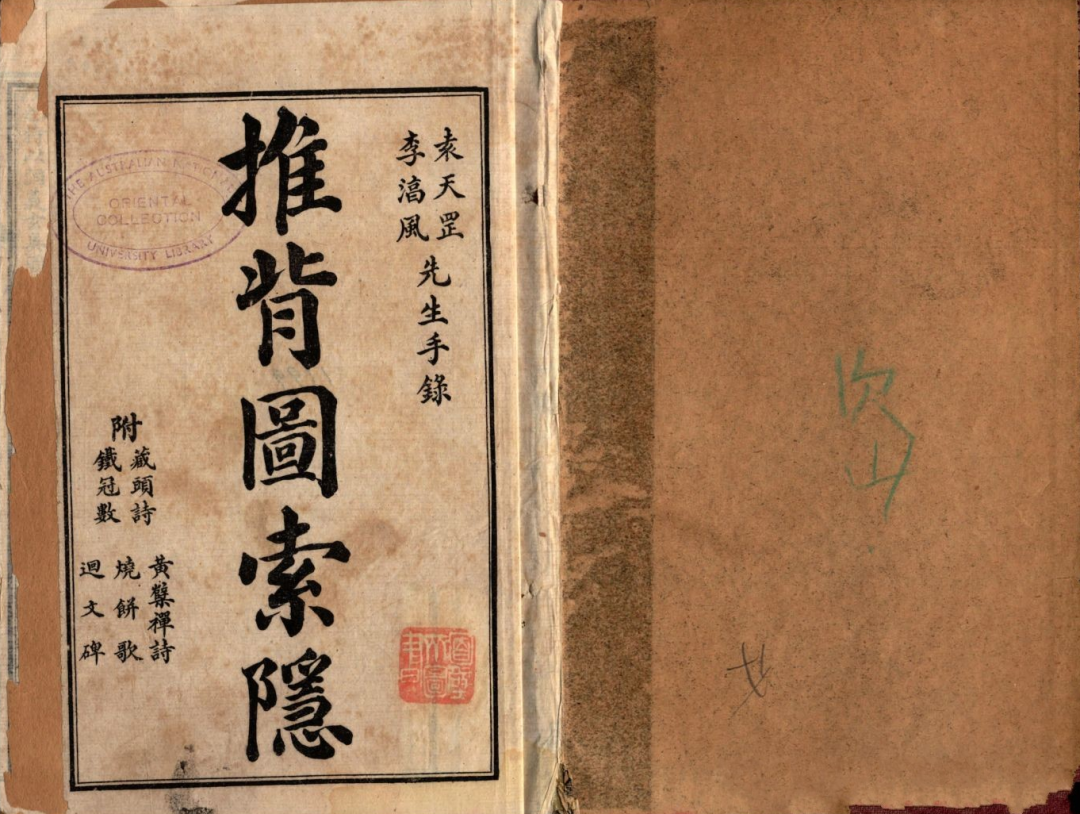 袁天罡
李淳風
先生手錄
推背圖索隱
附
藏頭詩
鐵冠數
黃檗禪詩
燒餅歌
迴文碑
THE AUSTRALIAN NATIONAL
ORIENTAL
COLLECTION
UNIVERSITY LIBRARY